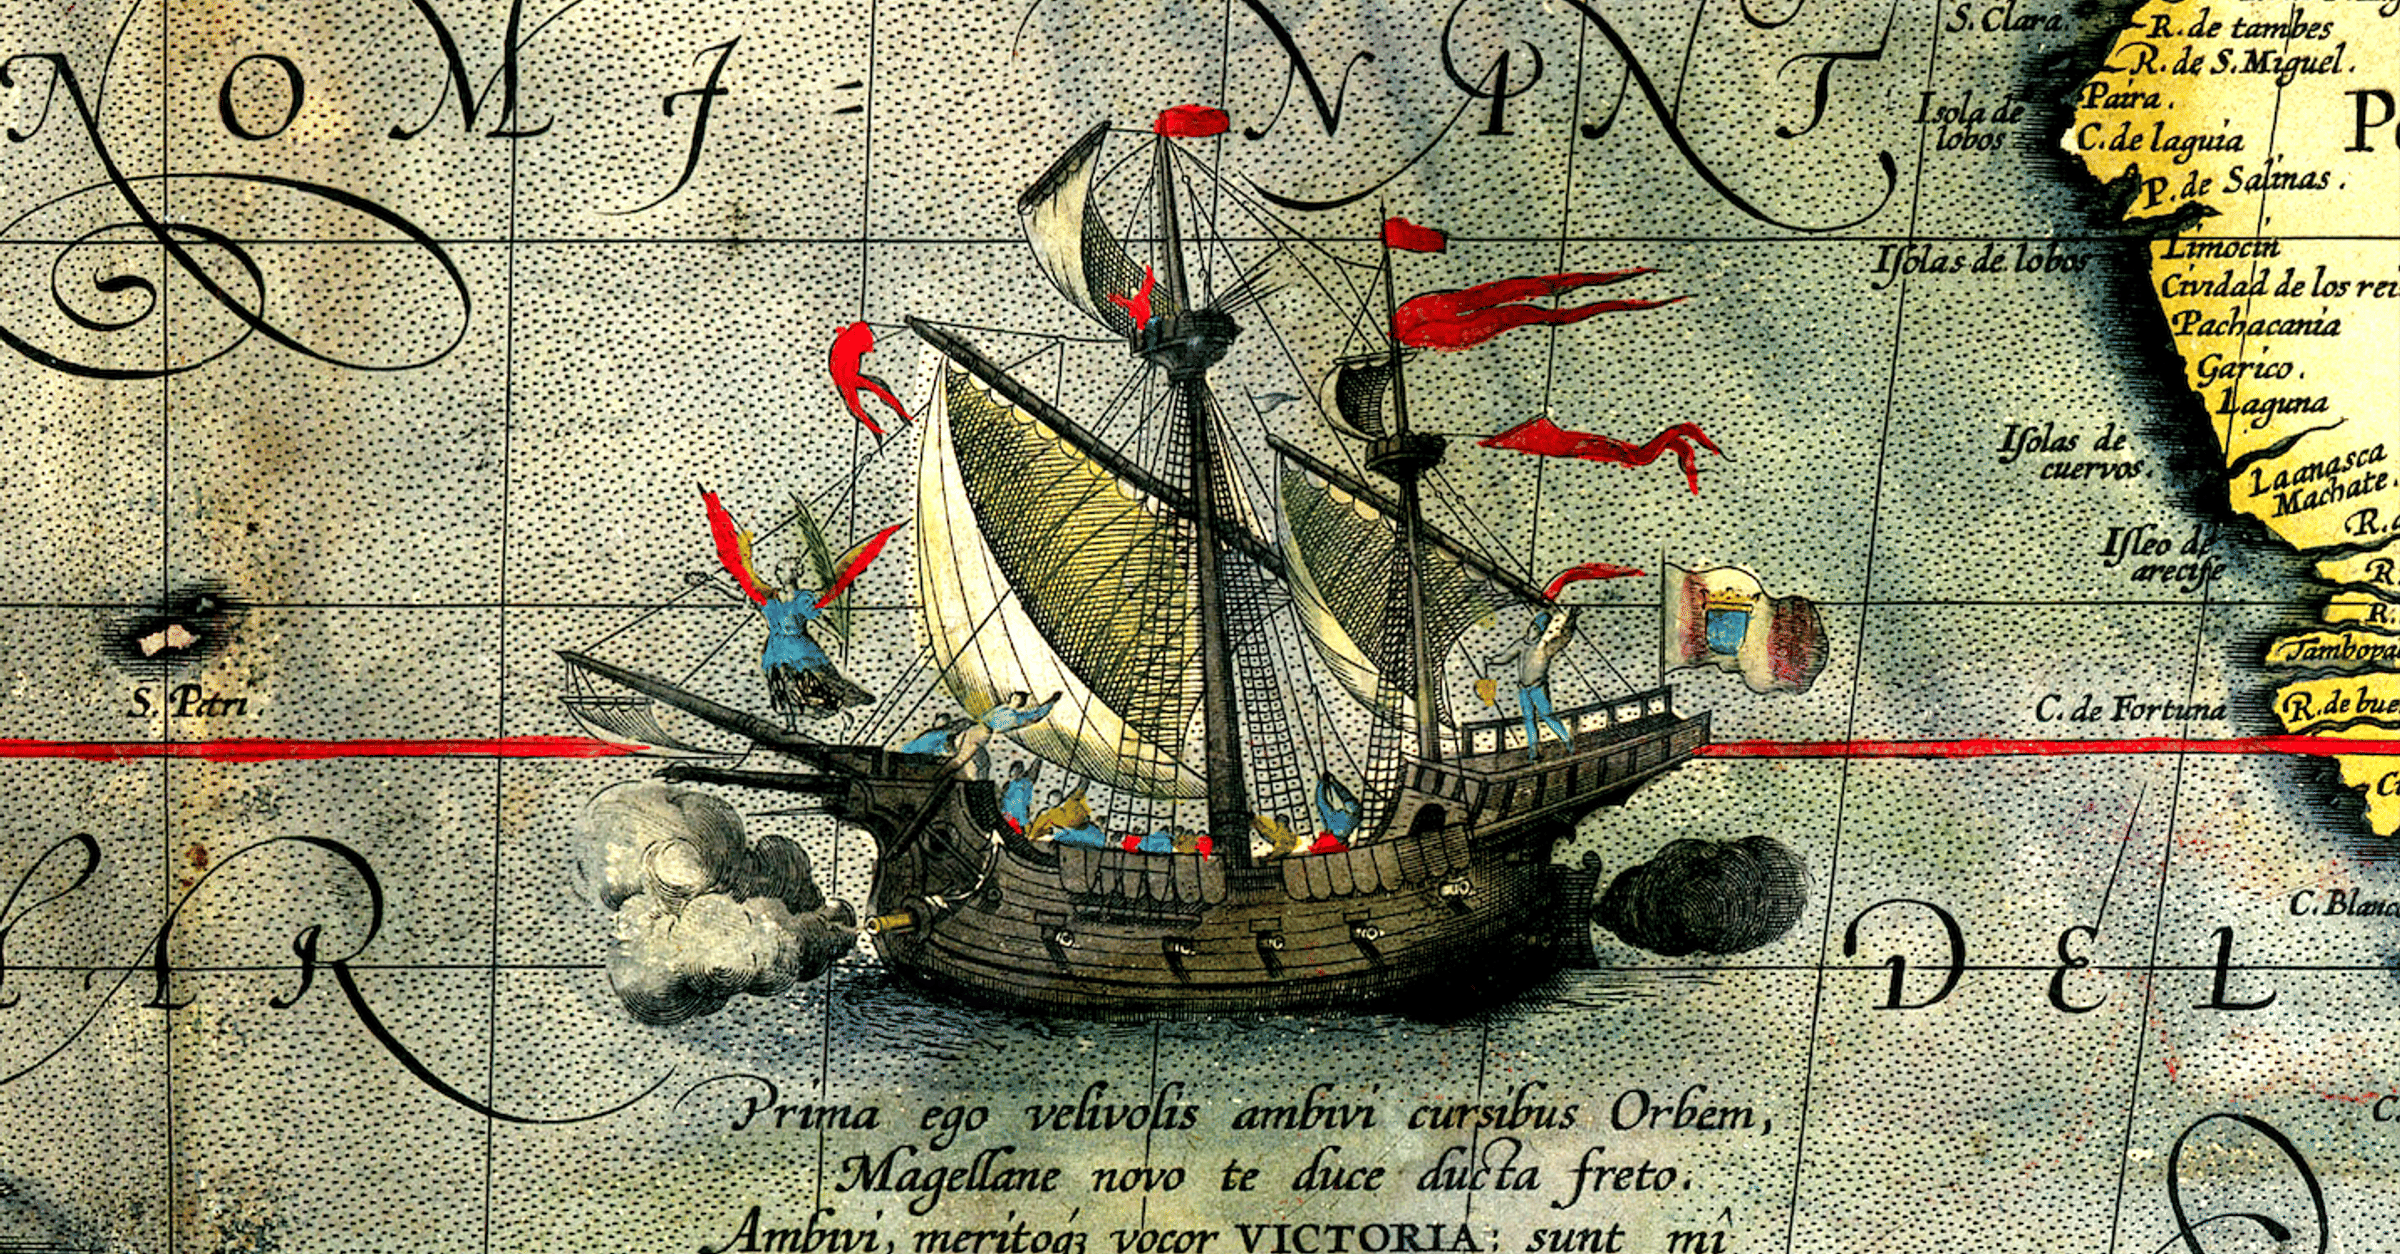 NOMI=NANT
S. Clara.
R. de tambes
R. de S. Miguel.
Paira.
Isola de
lobos
C. de laguia
P. de Salinas.
Iſolas de lobos
Limocin
Cividad de los rei
Pachacama
Garico.
Laguna
Iſolas de
cuervos
Laanasca
Machate.
Iſleo de
arecife
R.
R.
Tambopa
S. Petri
C. de Fortuna
R. de bue
AR
DEL
C. Blanc
Prima ego velivolis ambivi cursibus Orbem,
Magellane novo te duce ducta freto.
Ambivi, meritoqꝫ vocor VICTORIA: sunt mî